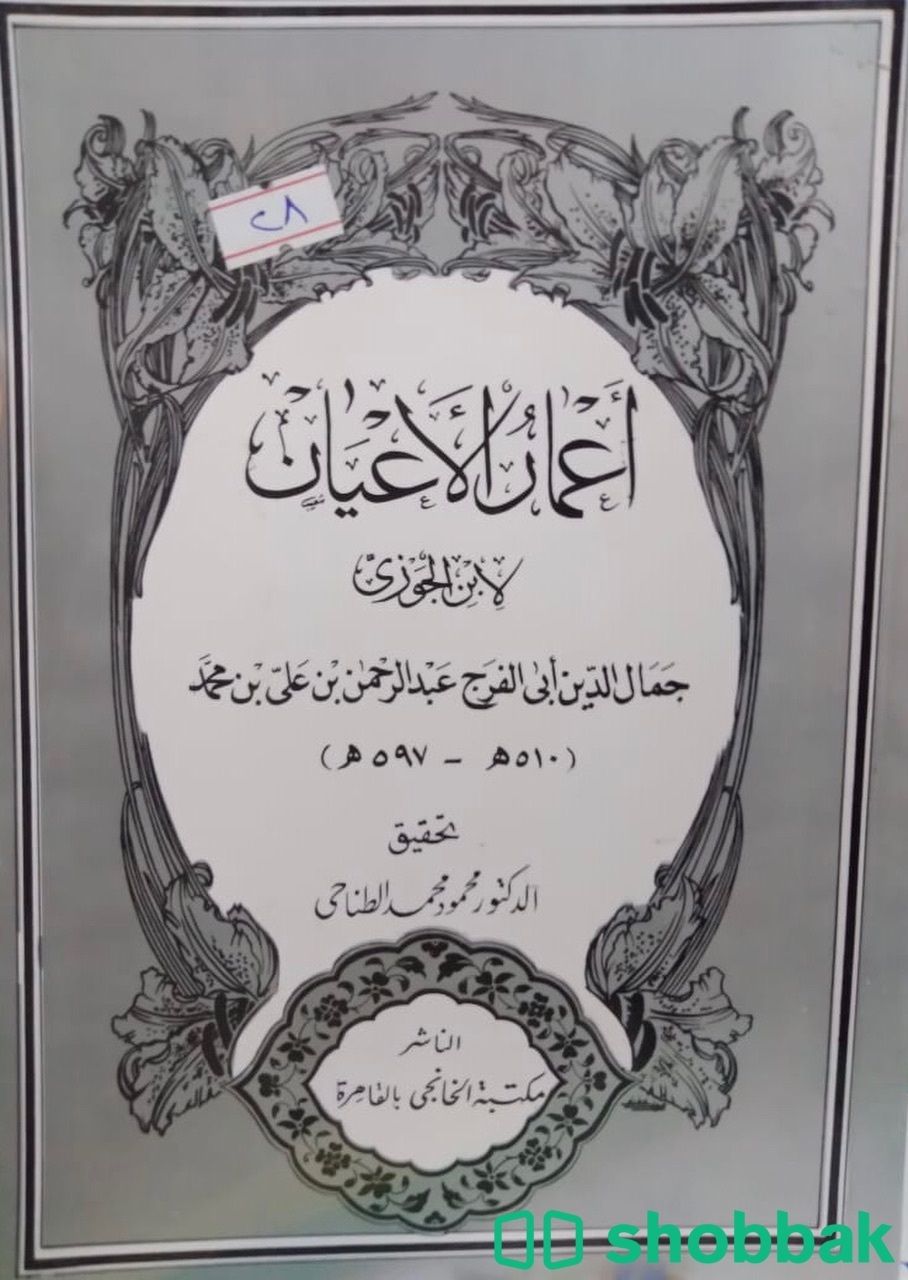 ٢٨
أَعْمَارُ الأَعْيَانِ
لِابْنِ الجَوْزِىّ
جَمَال الدِّين أبى الفَرَج عَبْد الرَّحْمٰن بْن عَلىّ بْن محمَّد
(٥١٠هـ - ٥٩٧هـ)
تحقيق
الدكتور محمود محمد الطناحى
الناشر
مكتبة الخانجى بالقاهرة
shobbak